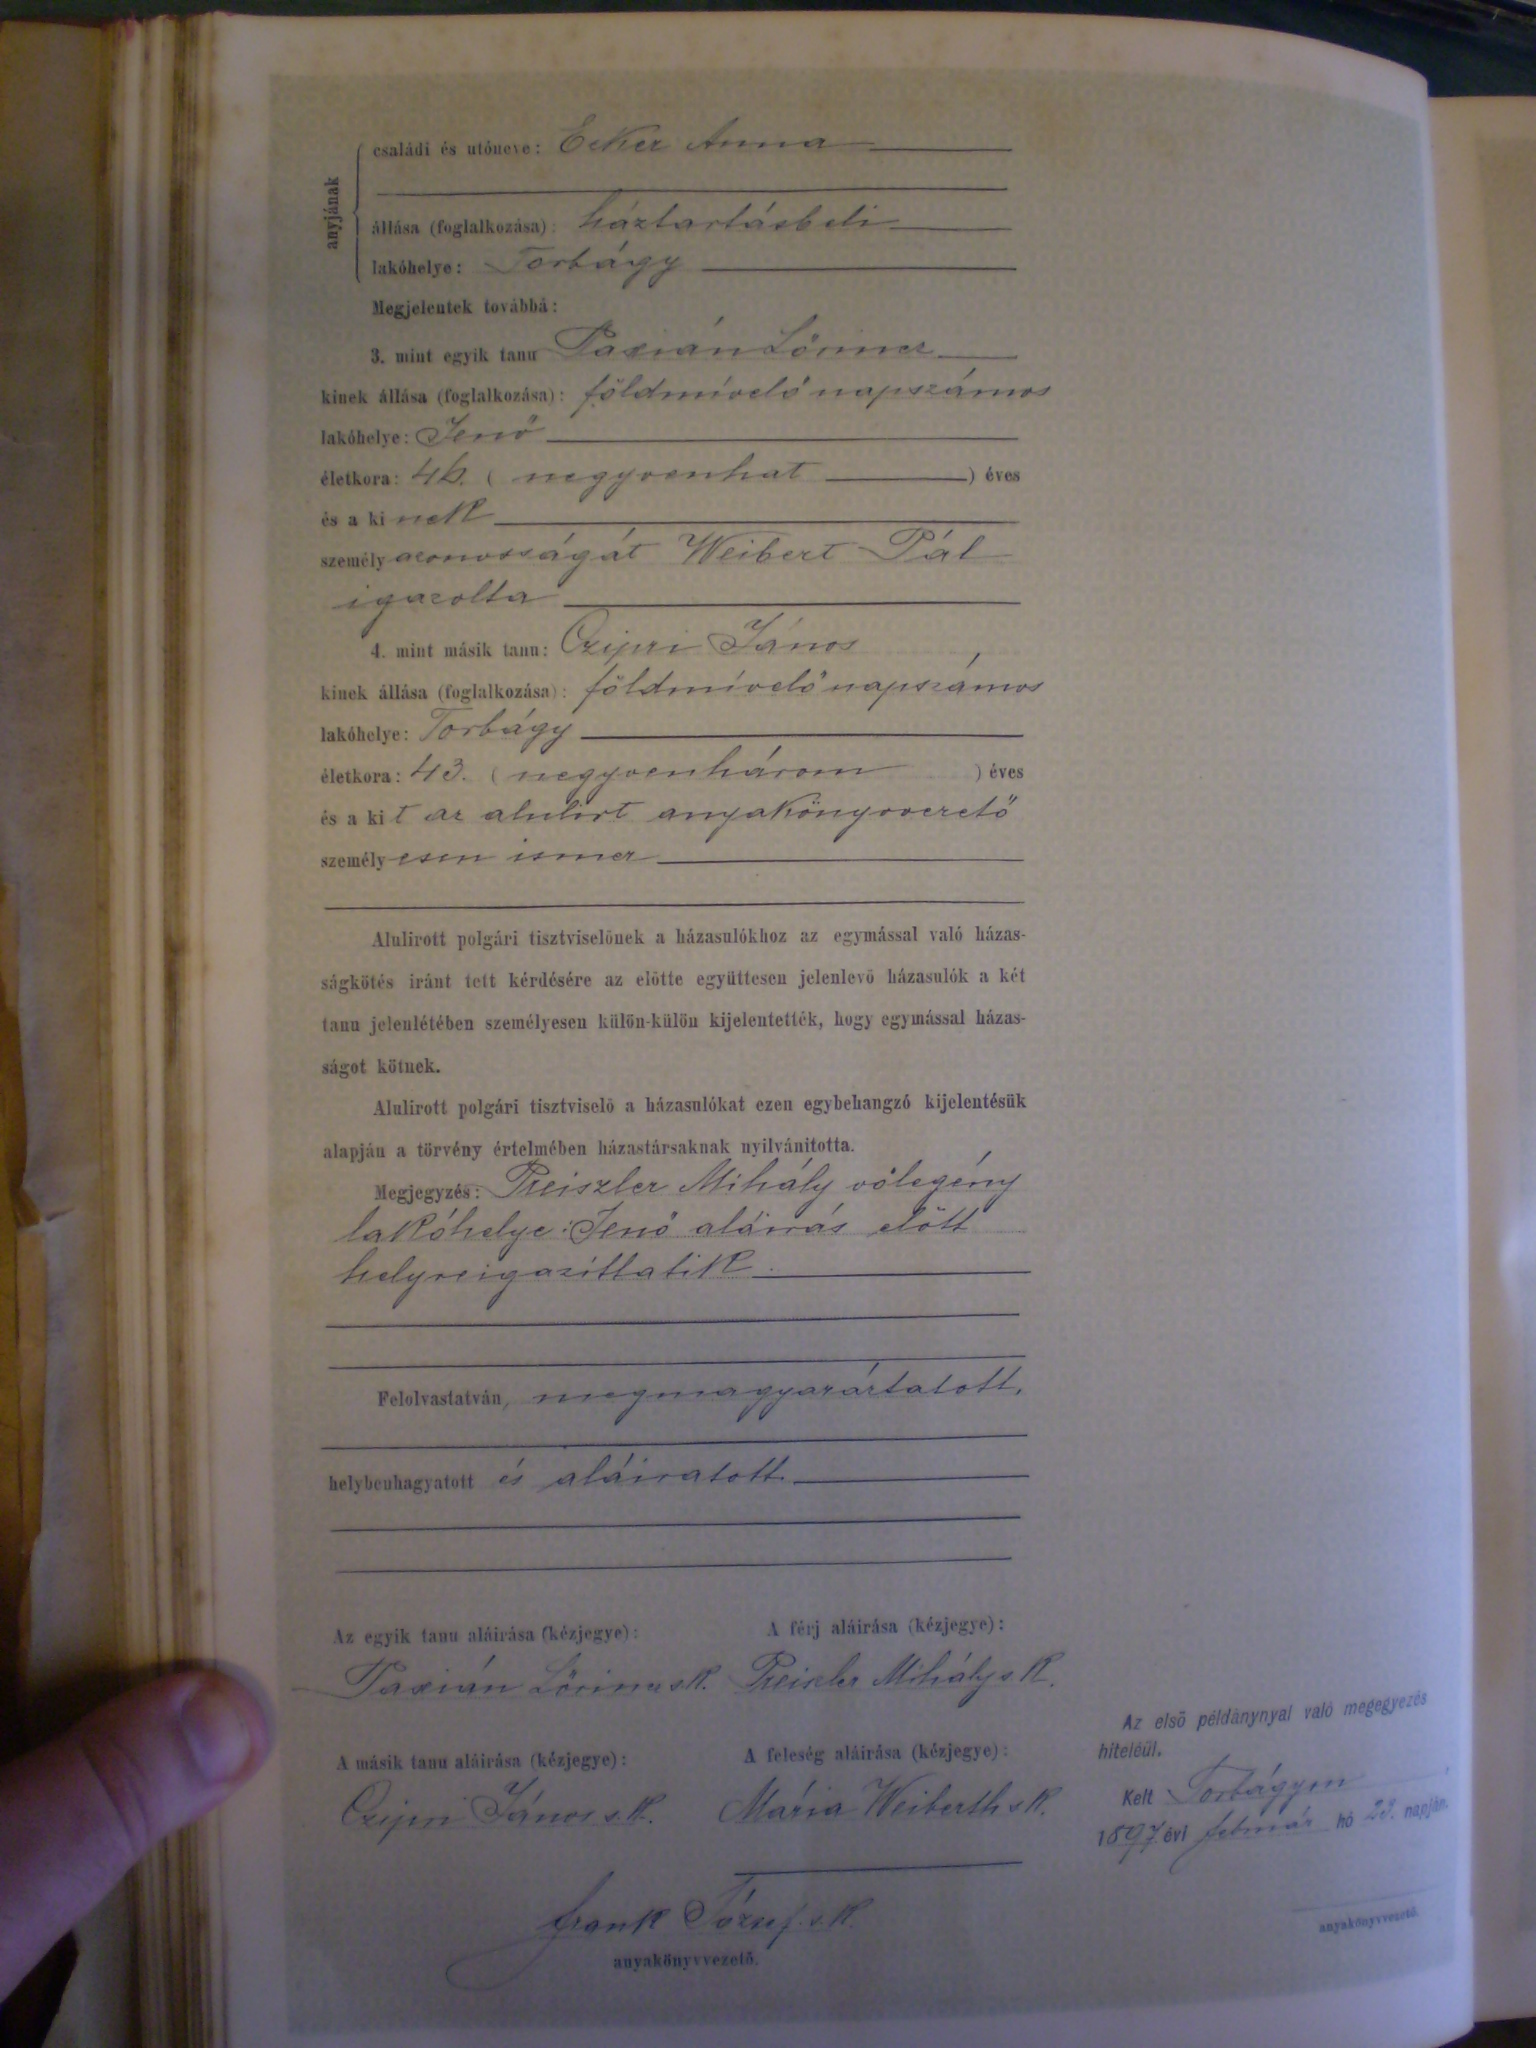 anyjának
családi és utóneve: Ecker Anna
állása (foglalkozása): háztartásbeli
lakóhelye: Torbágy
Megjelentek továbbá:
3. mint egyik tanu Paxián Lőrincz
kinek állása (foglalkozása): földmívelő napszámos
lakóhelye: Jenő
életkora: 46. (negyvenhat) éves
és a kinek
személyazonosságát Weibert Pál
igazolta
4. mint másik tanu: Czipri János
kinek állása (foglalkozása): földmívelő napszámos
lakóhelye: Torbágy
életkora: 43. (negyvenhárom) éves
és a kit az alulirt anyakönyvvezető
személyesen ismer
Alulirott polgári tisztviselőnek a házasulókhoz az egymással való házas-
ságkötés iránt tett kérdésére az előtte együttesen jelenlevő házasulók a két
tanu jelenlétében személyesen külön-külön kijelentették, hogy egymással házas-
ságot kötnek.
Alulirott polgári tisztviselő a házasulókat ezen egybehangzó kijelentésük
alapján a törvény értelmében házastársaknak nyilvánitotta.
Megjegyzés: Preiszler Mihály vőlegény
lakóhelye: Jenő aláirás előtt
helyreigazittatik.
Felolvastatván, megmagyaráztatott,
helybenhagyatott és aláiratott.
Az egyik tanu aláirása (kézjegye): A férj aláirása (kézjegye):
Paxián Lőrincz s.k. Preiszler Mihály s.k.
A másik tanu aláirása (kézjegye): A feleség aláirása (kézjegye):
Czipri János s.k. Mária Weiberth s.k.
Frank József s.k.
anyakönyvvezető.
Az első példánynyal való megegyezés
hiteléül.
Kelt Torbágyon
1897 évi február hó 23. napján.
anyakönyvvezető.